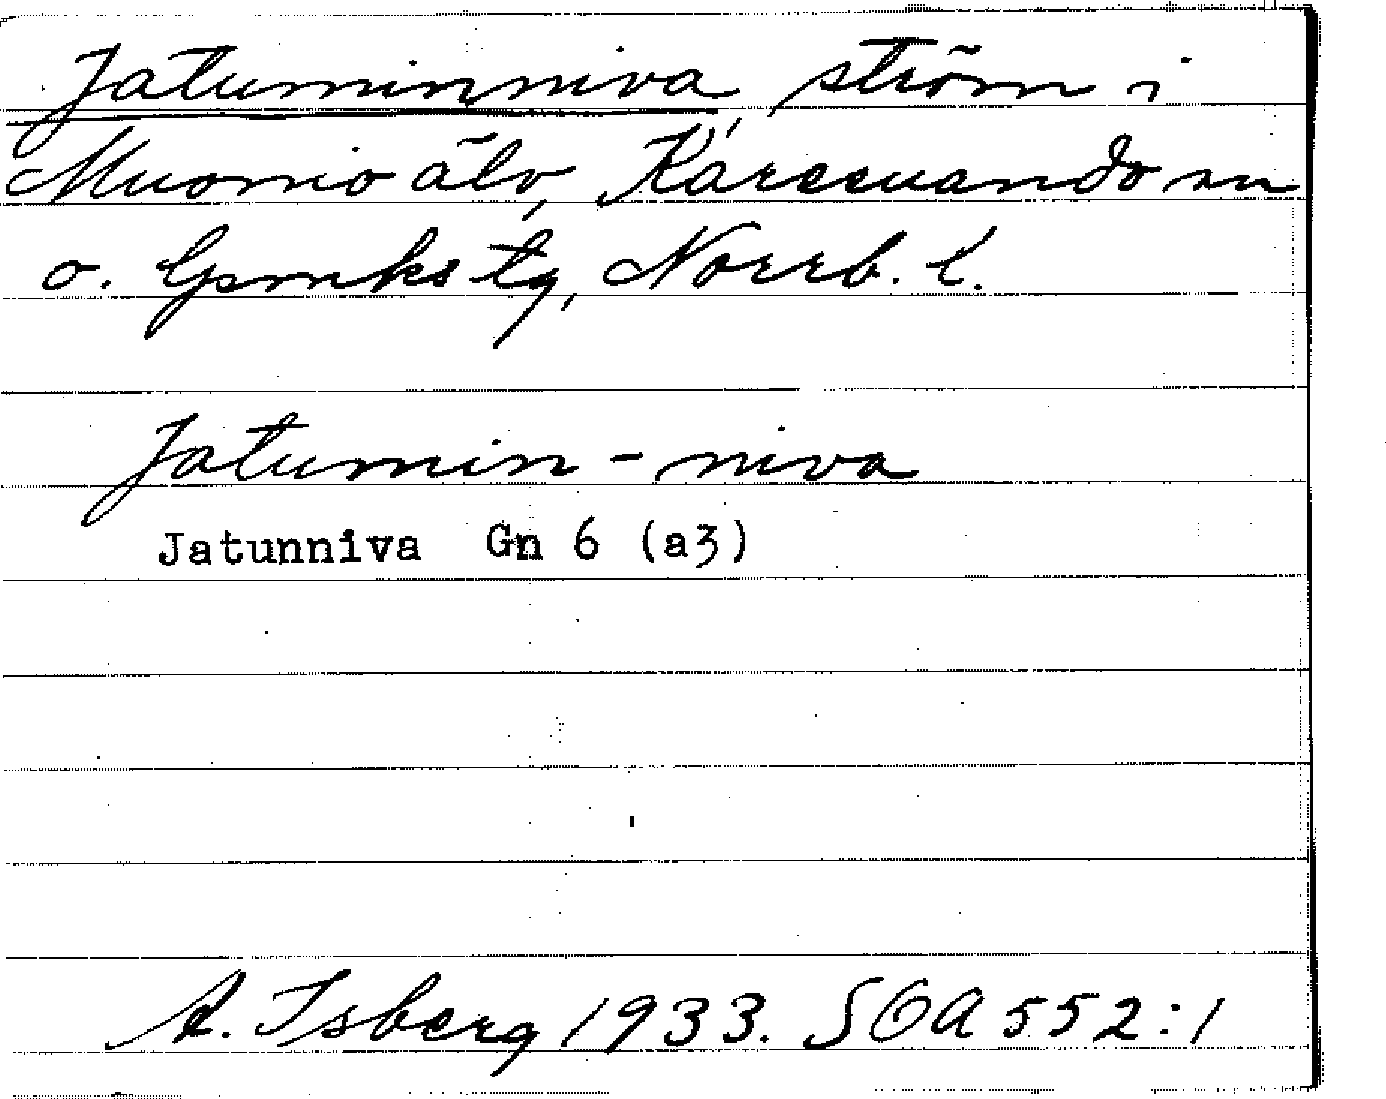 Jatuminniva, ström i
Muonio älv, Karesuando sn
o. Gsmks tg, Norrb. l.
Jatumin - niva
Jatunniva Gn 6 (a3)
A. Isberg 1933. SOA 552:1